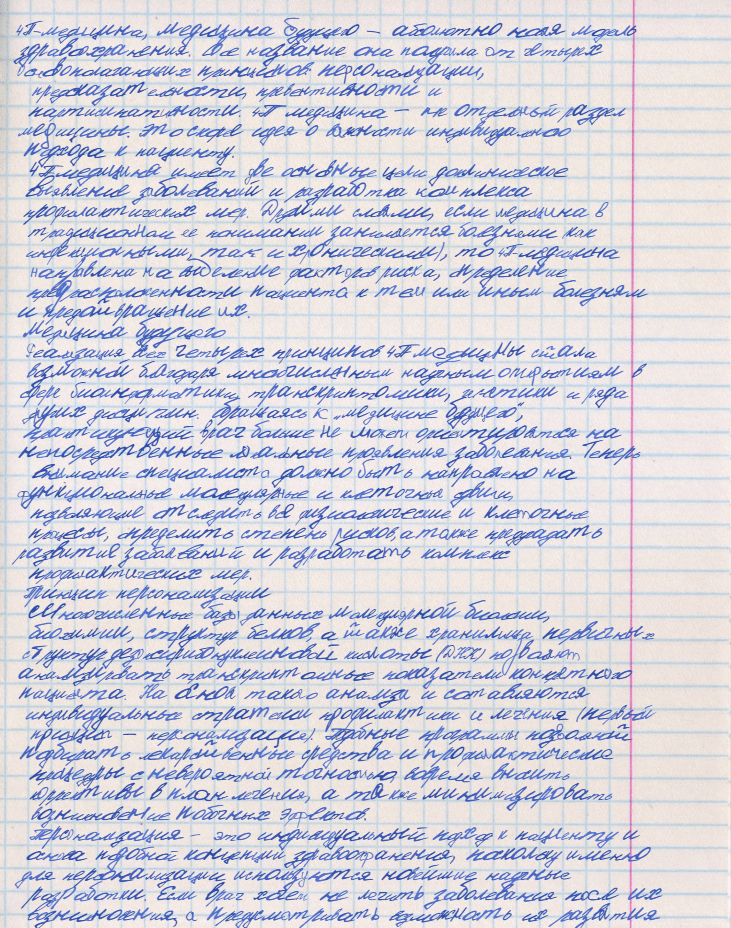 4П-медицина, медицина будущего – абсолютно новая модель
здравоохранения. Свое название она получила от четырех
основополагающих принципов: персонализации,
предсказательности, превентивности и
партисипативности. 4П медицина – не отдельный раздел
медицины. Это скорее идея о важности индивидуального
подхода к пациенту.
4П медицина имеет две основные цели доклиническое
выявление заболеваний и разработка комплекса
профилактических мер. Другими словами, если медицина в
традиционном ее понимании занимается болезнями (как
инфекционными, так и хроническими), то 4П-медицина
направлена на выявление факторов риска, определение
предрасположенности пациента к тем или иным болезням
и предотвращение их.
Медицина будущего
Реализация всех четырех принципов 4П медицины стала
возможной благодаря многочисленным научным открытиям в
сфере биоинформатики, транскриптомики, генетики и ряда
других дисциплин. Обращаясь к медицине будущего,
практикующий врач больше не может ориентироваться на
непосредственные реальные проявления заболевания. Теперь
внимание специалиста должно быть направлено на
функциональные молекулярные и клеточные
позволяющие отследить все физиологические и клеточные
процессы, определить степень рисков, а также предугадать
развитие заболеваний и разработать комплекс
профилактических мер.
Принцип персонализации
Многочисленные базы данных молекулярной биологии,
биохимии, структур белков, а также хранилища первичных
структур дезоксирибонуклеиновой кислоты (ДНК) позволяют
анализировать транскриптомные показатели конкретного
пациента. На основе такого анализа и составляются
индивидуальные стратегии профилактики и лечения (первый
принцип – персонализация). Подобные программы
подбирать лекарственные средства и профилактические
процедуры с невероятной точностью, вовремя вносить
коррективы в план лечения, а также минимизировать
возникновение побочных эффектов.
Персонализация – это индивидуальный подход к пациенту и
основа подобной концепции здравоохранения, поскольку именно
для персонализации используются новейшие научные
разработки. Если врач хочет не лечить заболевания после их
возникновения, а предусматривать возможность их развития